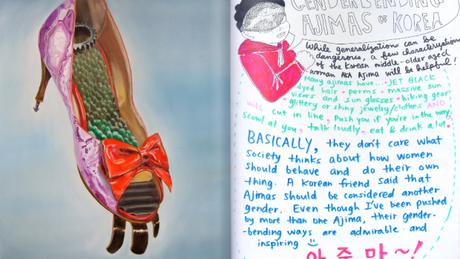 GENDERBENDING
AJIMAS OF KOREA
While generalizations can be
dangerous, a few characterizations
of the Korean middle-older aged
woman AKA Ajima will be helpful!
Many ajimas have... JET BLACK
dyed hair • perms • massive sun
visors and sun glasses • hiking gear
glittery or shiny jewelry/clothes AND
will cut in line, push you if you're in the way,
scowl at you, talk loudly, eat & drink a lot.
BASICALLY, they don't care what
society thinks about how women
should behave and do their own
thing. A Korean friend said that
Ajimas should be considered another
gender. Even though I've been pushed
by more than one Ajima, their gender-
-bending ways are admirable and
inspiring
아주마~!